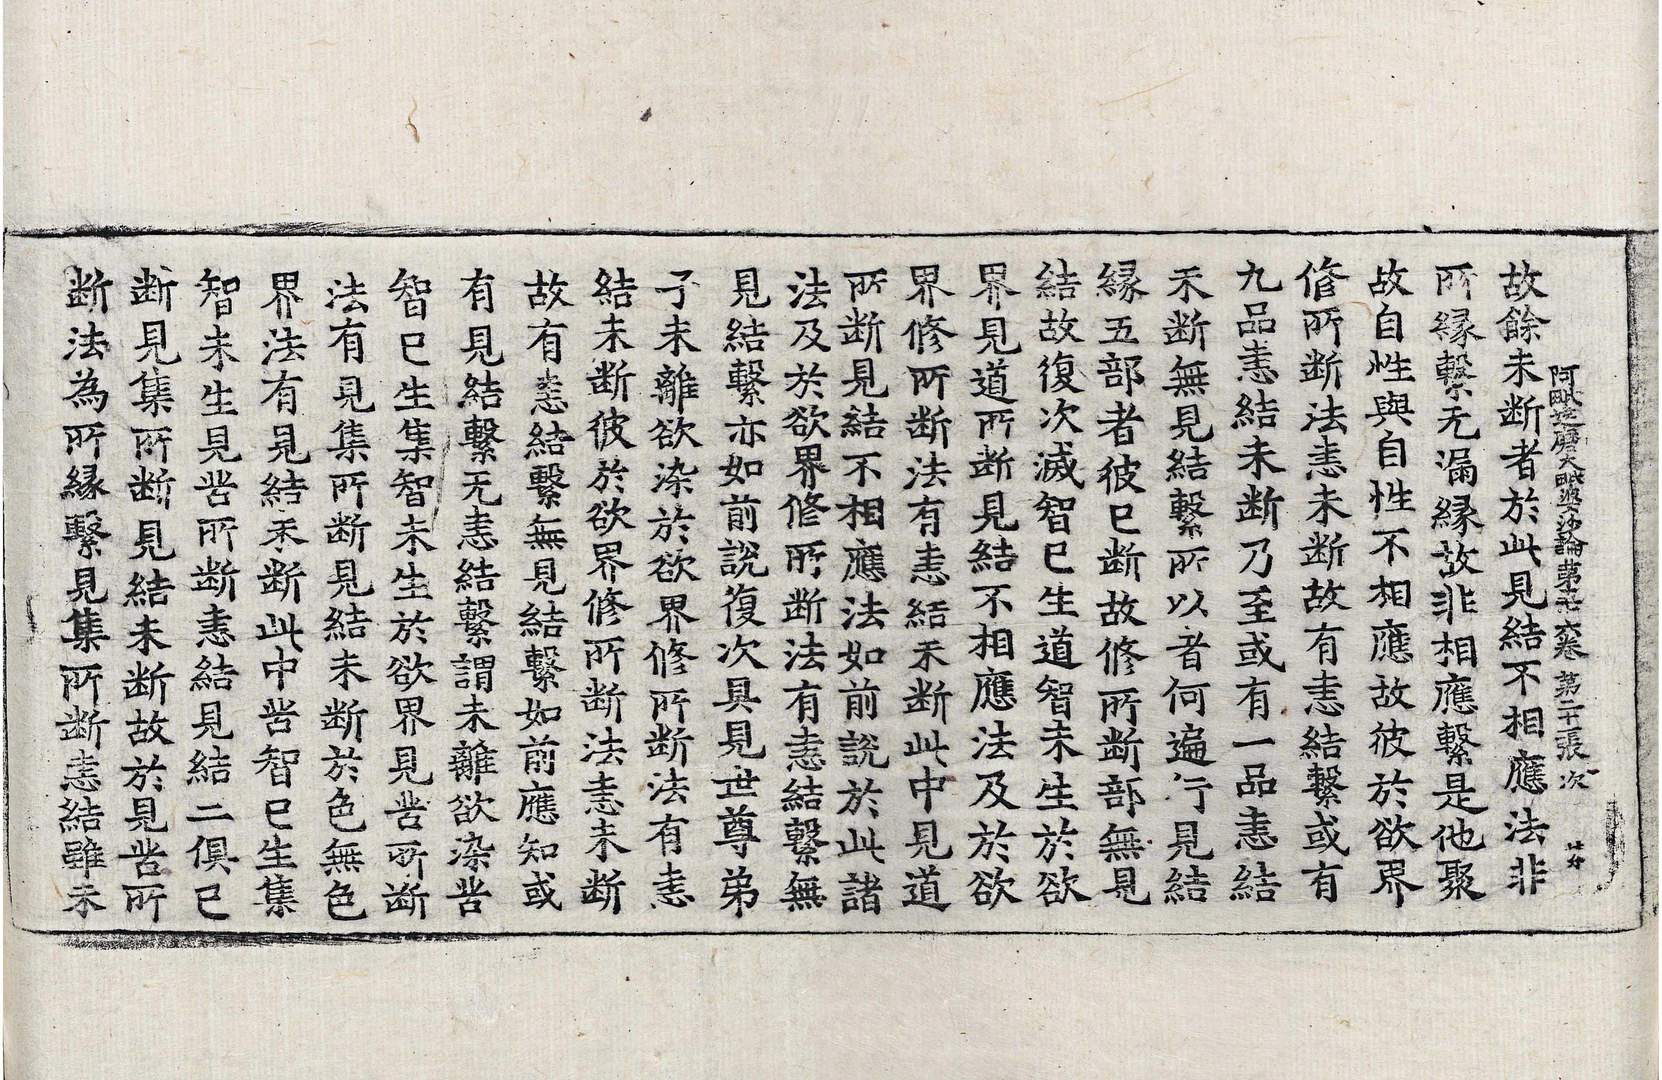 阿毗達磨大毗婆沙論第五十六卷 第二十一張 次
故餘未断者於此見結不相應法非
所縁繫无漏縁故非相應繫是他聚
故自性與自性不相應故彼於欲界
修所断法恚未断故有恚結繫或有
九品恚結未断乃至或有一品恚結
未断無見結繫所以者何遍行見結
縁五部者彼已断故修所断部無見
結故復次滅智已生道智未生於欲
界見道所断見結不相應法及於欲
界修所断法有恚結未断此中見道
所断見結不相應法如前說於此諸
法及於欲界修所断法有恚結繫無
見結繫亦如前說復次具見世尊弟
子未離欲染於欲界修所断法有恚
結未断彼於欲界修所断法恚未断
故有恚結繫無見結繫如前應知或
有見結繫无恚結繫謂未離欲染苦
智已生集智未生於欲界見苦所断
法有見集所断見結未断於色無色
界法有見結未断此中苦智已生集
智未生見苦所断恚結見結二俱已
断見集所断見結未断故於見苦所
断法為所縁繫見集所断恚結雖未